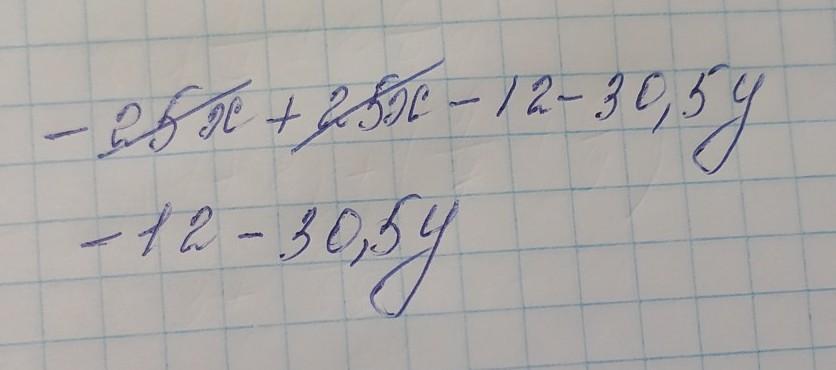 -25x + 25x - 12 - 30,5y
-12 - 30,5y